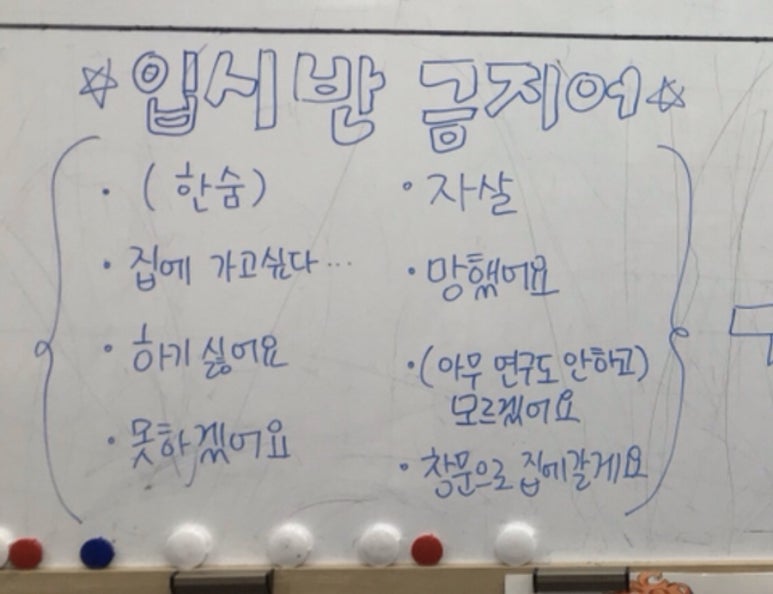 ☆입시반 금지어☆
· (한숨)
· 집에 가고싶다...
· 하기 싫어요
· 못하겠어요
· 자살
· 망했어요
· (아무 연구도 안하고)
모르겠어요
· 창문으로 집에갈게요